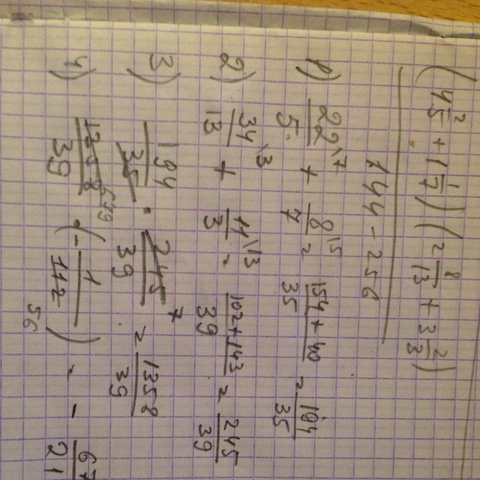 (4 2/5 + 1 1/7)(2 8/13 + 3 2/3)
144 - 256
1) 22\7/5 + 8\5/7 = 154 + 40/35 = 194/35
2) 34\3/13 + 11\13/3 = 102 + 143/39 = 245/39
3) 194/35 · 245 7/39 = 1358/39
4) 1358 679/39 · (- 1/112 56) = - 67/21